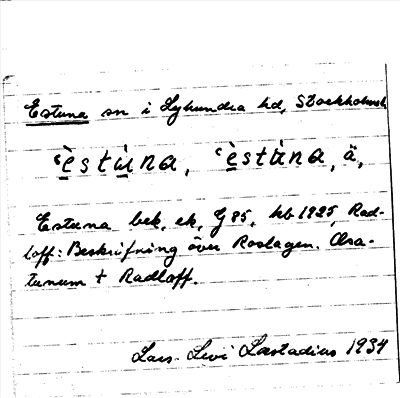 Estuna sn i Lyhundra hd, Stockholms l.
‘èstu̇na, ‘èstu̇na, ä,
Estuna bek, ek, G 85, hb 1825, Rad-
loff: Beskrifning över Roslagen. Olsa-
tunum + Radloff.
Lars-Levi Læstadius 1934